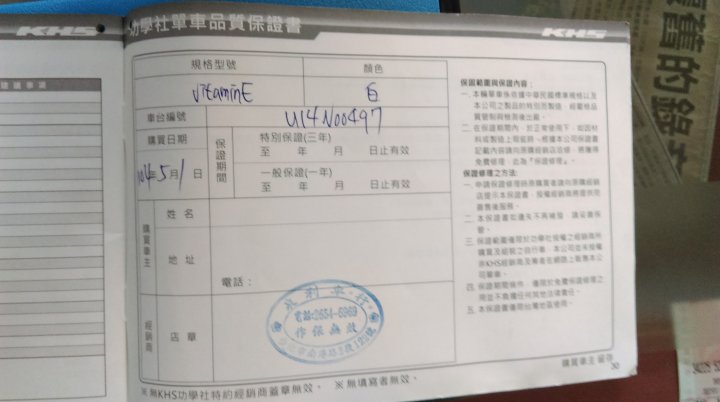 KHS
功學社單車品質保證書
KHS
規格型號
顏色
VitaminE
白
車台編號
U14N00497
購買日期
年5月1日
保證期間
特別保證(三年)
至 年 月 日止有效
一般保證(一年)
至 年 月 日止有效
購買車主
姓名
地址
電話:
經銷商
店章
永利車行
電話:2654-6969
作保無效
※無KHS功學社特約經銷商蓋章無效。 ※無填寫者無效。
保證範圍與保證內容:
一. 本輪單車係依據中華民國標準規格以及
本公司之製品的特別原製造,經嚴格品
質管制與檢測後出廠。
二. 在保證期間內,於正常使用下,如因材
料或製造上瑕疵時,憑本公司保證書
記載內容請向原購經銷店洽修,將獲得
免費修理,此為「保證修理」。
保證修理之方法:
一. 申請保證修理時原購買者請向原購經銷
店提示本保證書,授權經銷商應提供完
善售後服務。
二. 本保證書如遺失不再補發,請妥善保
管。
三. 保證範圍僅限於功學社授權之經銷商所
購買及組裝之自行車,本公司並未授權
非KHS經銷商及業者在網路上販售本公
司單車。
四. 保證期間條件,僅限於免費保證修理之
用並不負擔任何其他法律責任。
五. 本保證書僅限台灣地區使用。
購買車主 留存
30
建議事項